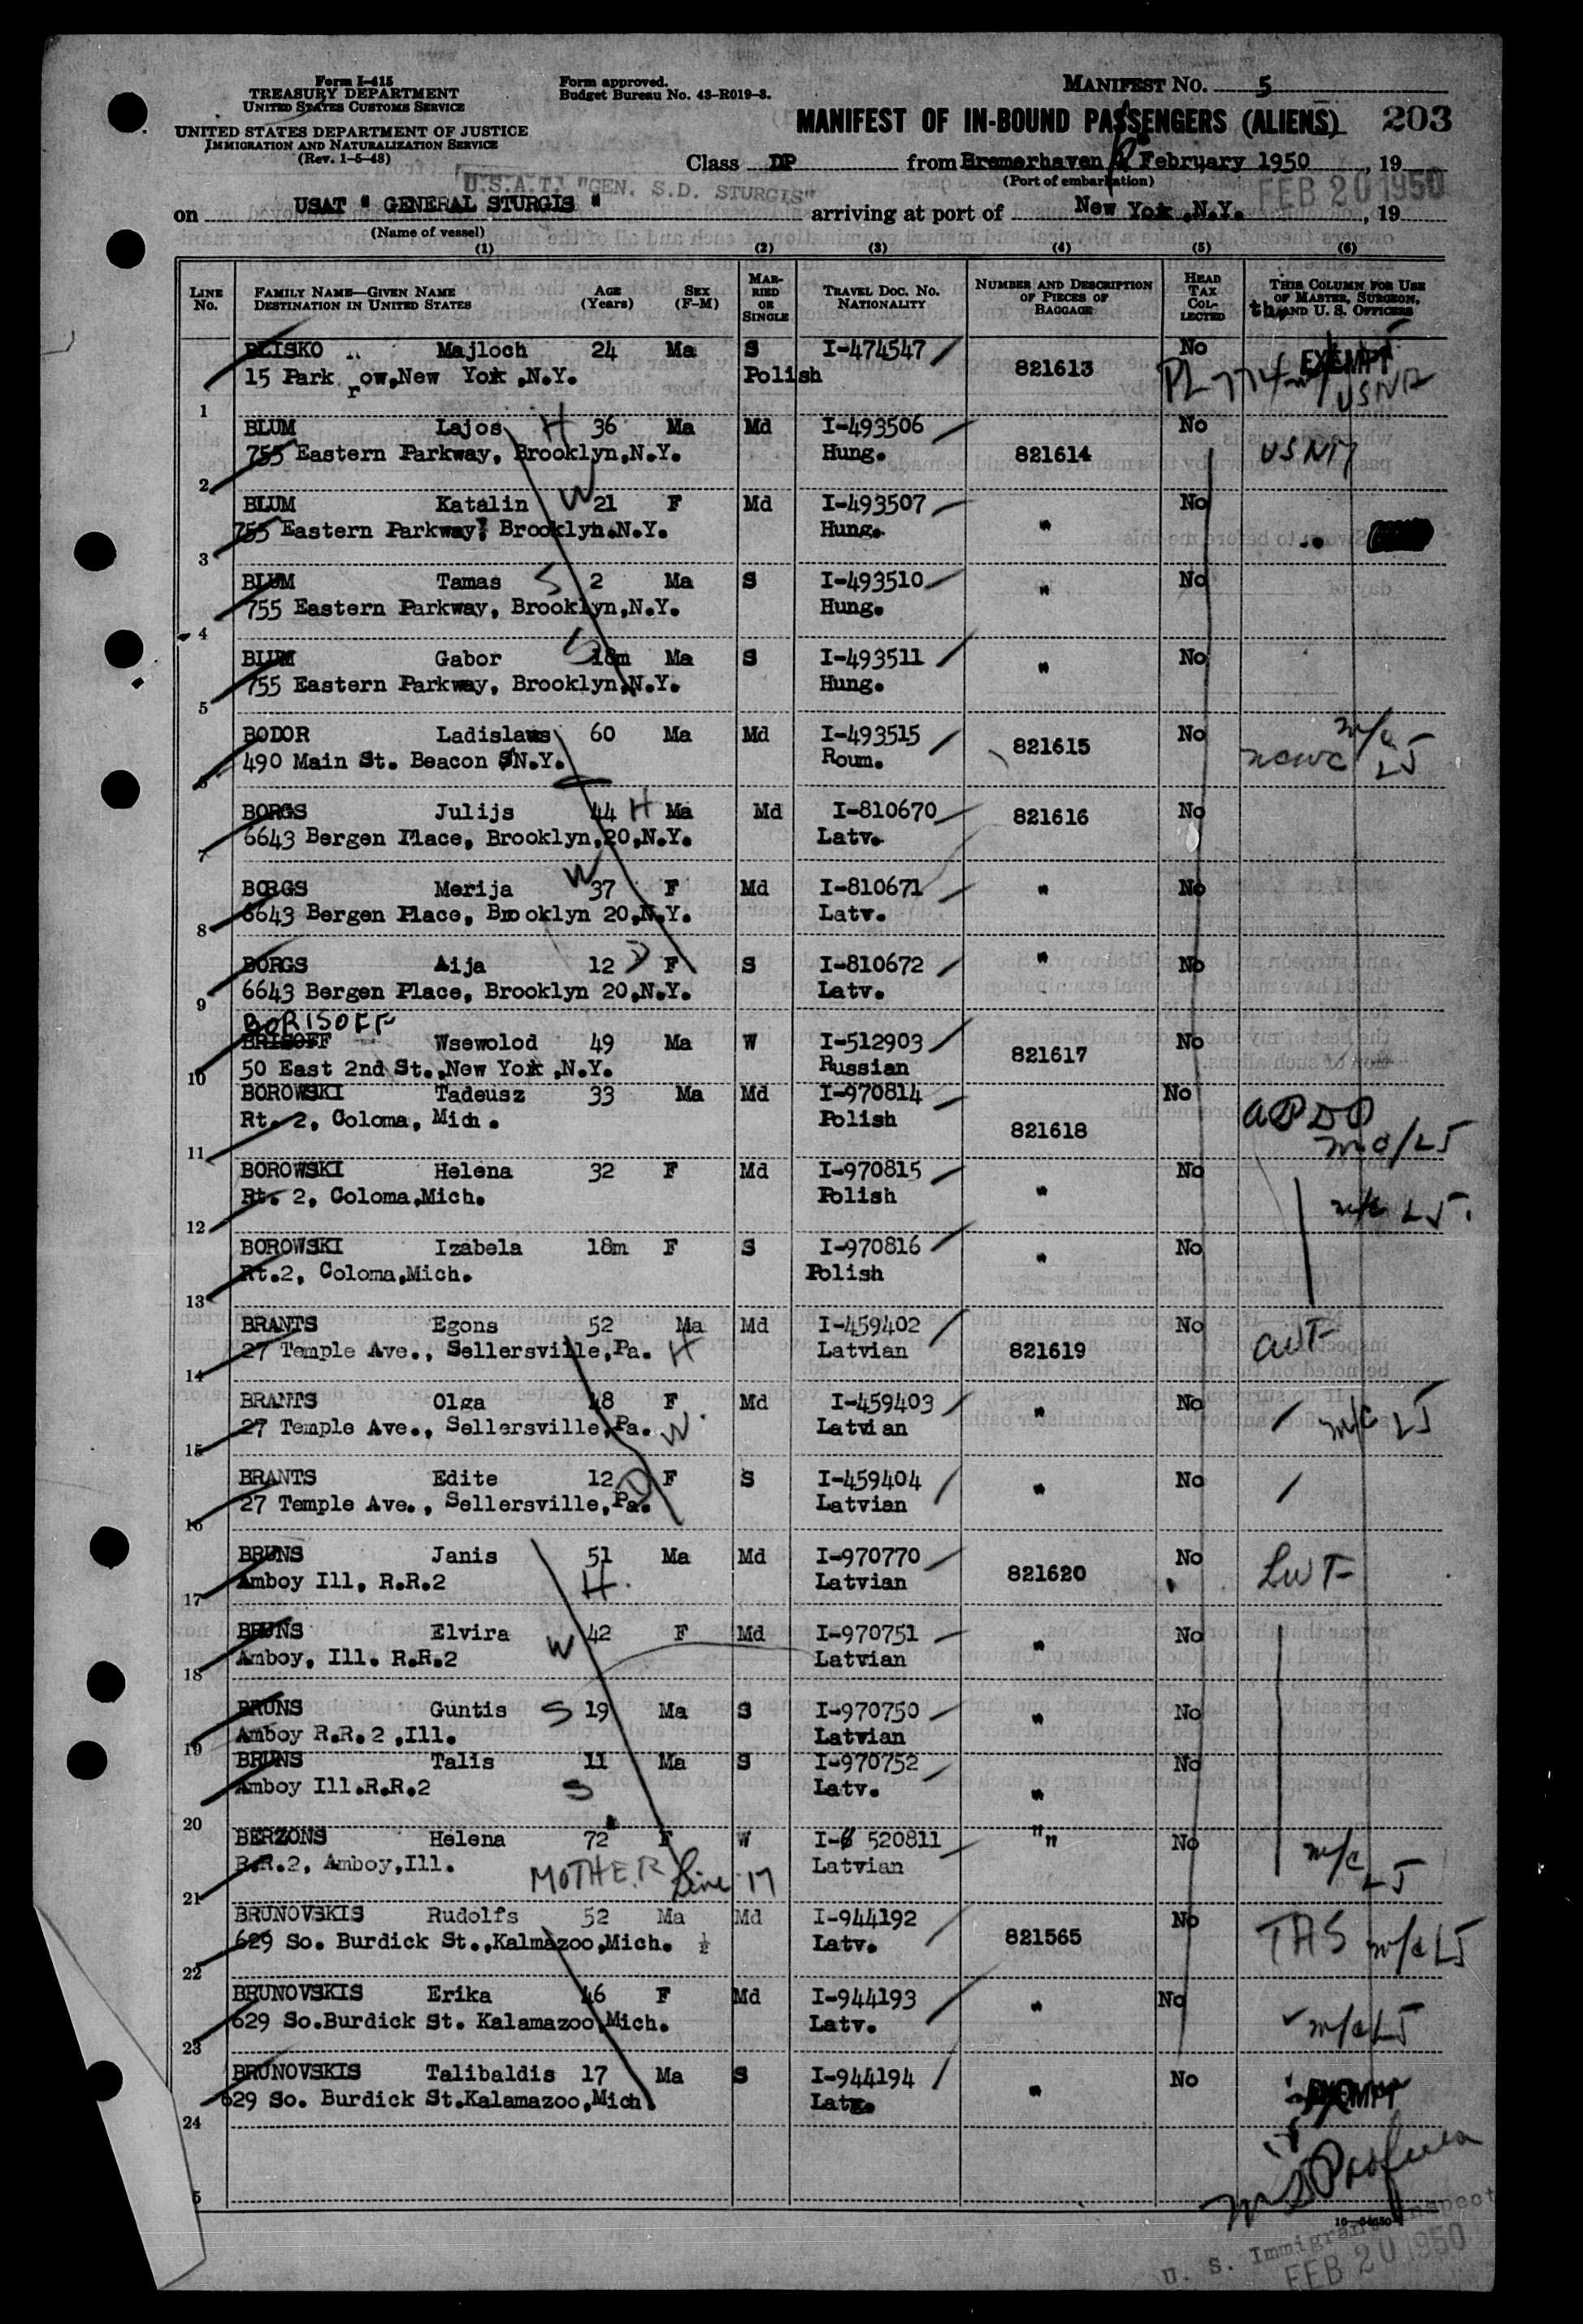 Form I-415
TREASURY DEPARTMENT
UNITED STATES CUSTOMS SERVICE
UNITED STATES DEPARTMENT OF JUSTICE
IMMIGRATION AND NATURALIZATION SERVICE
(Rev. 1-5-48)
Form approved.
Budget Bureau No. 43-R019-3.
MANIFEST No. 5
MANIFEST OF IN-BOUND PASSENGERS (ALIENS) 203
Class DP from Bremerhaven February 1950, 19
(Port of embarkation)
U.S.A.T. "GEN. S.D. STURGIS"
FEB 20 1950
on USAT " GENERAL STURGIS " arriving at port of New York ,N.Y. , 19
(Name of vessel)
(1) (2) (3) (4) (5) (6)
LINE No. FAMILY NAME—GIVEN NAME DESTINATION IN UNITED STATES AGE (Years) SEX (F-M) MARRIED OR SINGLE TRAVEL DOC. NO. NATIONALITY NUMBER AND DESCRIPTION OF PIECES OF BAGGAGE HEAD TAX COLLECTED THIS COLUMN FOR USE OF MASTER, SURGEON, AND U. S. OFFICERS
BLISKO Majloch 24 Ma S I-474547 821613 No EXEMPT
15 Park row,New York ,N.Y. Polish USNA
1
BLUM Lajos H 36 Ma Md I-493506 821614 No
755 Eastern Parkway, Brooklyn,N.Y. Hung. USNA
2
BLUM Katalin W 21 F Md I-493507 " No
755 Eastern Parkway, Brooklyn.N.Y. Hung.
3
BLUM Tamas S 2 Ma S I-493510 " No
755 Eastern Parkway, Brooklyn,N.Y. Hung.
4
BLUM Gabor S 18m Ma S I-493511 " No
755 Eastern Parkway, Brooklyn,N.Y. Hung.
5
BODOR Ladislaus 60 Ma Md I-493515 821615 No
490 Main St. Beacon N.Y. Roum. NCWC m/c LJ
6
BORGS Julijs 44 H Ma Md I-810670 821616 No
6643 Bergen Place, Brooklyn,20,N.Y. Latv.
7
BORGS Merija W 37 F Md I-810671 " No
6643 Bergen Place, Brooklyn 20,N.Y. Latv.
8
BORGS Aija 12 D F S I-810672 " No
6643 Bergen Place, Brooklyn 20,N.Y. Latv.
9
BORISOFF
BRISOFF Wsewolod 49 Ma W I-512903 821617 No
50 East 2nd St.,New York ,N.Y. Russian
10
BOROWSKI Tadeusz 33 Ma Md I-970814 821618 No
Rt. 2, Coloma, Mich. Polish
11
BOROWSKI Helena 32 F Md I-970815 " No
Rt. 2, Coloma,Mich. Polish m/c LJ.
12
BOROWSKI Izabela 18m F S I-970816 " No
Rt.2, Coloma,Mich. Polish
13
BRANTS Egons 52 Ma Md I-459402 821619 No
27 Temple Ave., Sellersville,Pa. H Latvian
14
BRANTS Olga 48 F Md I-459403 " No
27 Temple Ave., Sellersville,Pa. W Latvian m/c LJ
15
BRANTS Edite 12 D F S I-459404 " No
27 Temple Ave., Sellersville,Pa. Latvian
16
BRUNS Janis 51 Ma Md I-970770 821620 No
Amboy Ill, R.R.2 H. Latvian
17
BRUNS Elvira W 42 F Md I-970751 " No
Amboy, Ill. R.R.2 Latvian
18
BRUNS Guntis S 19 Ma S I-970750 " No
Amboy R.R.2 ,Ill. Latvian
19
BRUNS Talis 11 Ma S I-970752 " No
Amboy Ill.R.R.2 S Latv.
20
BERZONS Helena 72 F W I- 520811 " No
R.R.2, Amboy,Ill. MOTHER Line 17 Latvian m/c LJ
21
BRUNOVSKIS Rudolfs 52 Ma Md I-944192 821565 No
629 So. Burdick St.,Kalmazoo,Mich. ½ Latv. m/c LJ
22
BRUNOVSKIS Erika 46 F Md I-944193 " No
629 So.Burdick St. Kalamazoo,Mich. Latv. m/c LJ
23
BRUNOVSKIS Talibaldis 17 Ma S I-944194 " No
629 So. Burdick St.Kalamazoo,Mich. EXEMPT
24
U. S. Immigrant Inspect
FEB 20 1950